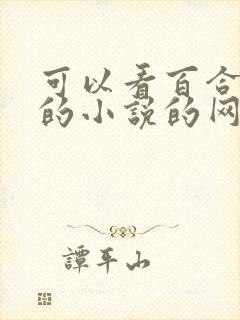 可以看百合
的小说的网
譚平山